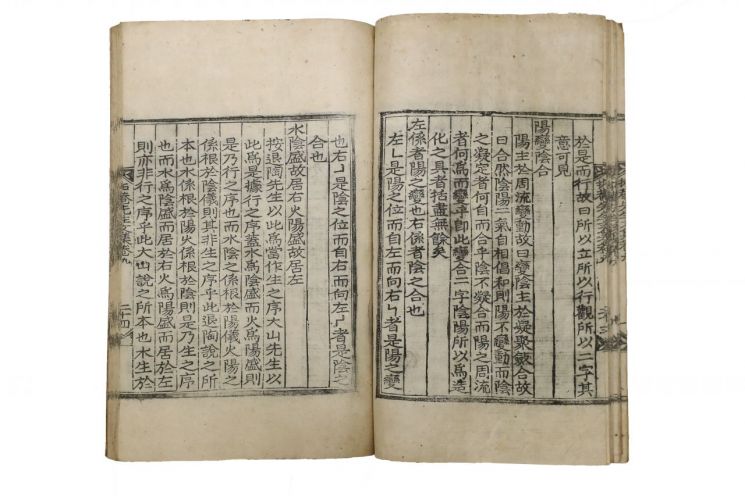 於是而行故曰所以立所以行觀所以二字其
意可見
陽變陰合
陽主於周流變動故曰變陰主於凝聚斂合故
曰合然陰陽二氣自相倡和則陽不變動而陰
之凝定者何自而合乎陰不凝合而陽之周流
者何爲而變乎卽此變合二字陰陽所以爲造
化之具者括盡無餘矣
左係者陽之變也右係者陰之合也
左乚是陽之位而自左而向右乚者是陽之變
也右亅是陰之位而自右而向左亅者是陰之
合也
水陰盛故居右火陽盛故居左
按退陶先生以此爲當作生之序大山先生以
此爲是據行之序蓋水爲陰盛而火爲陽盛則
是乃行之序也而水陰之係根於陽儀火陽之
係根於陰儀則其非生之序乎此退陶說之所
本也水係根於陽火係根於陰則是乃生之序
也而水爲陰盛而居於右火爲陽盛而居於左
則亦非行之序乎此大山說之所本也水生於
先生文集卷九
二十四